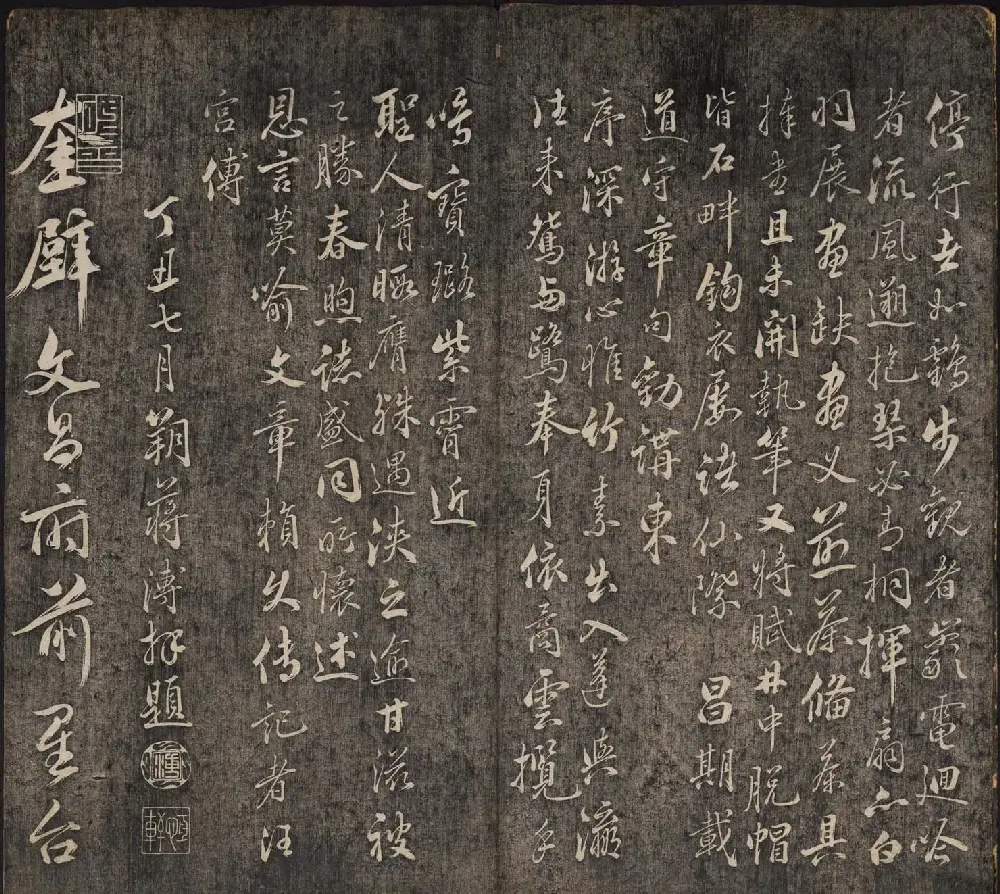 停行者如鶴步觀者嚴電迴吟
者流風邇抱琴必青桐揮扇亦白
羽展畫缺畫叉煎茶備茶具
捧書且未開執筆又將賦井中脫帽
皆石畔鈎衣屢諸仙際 昌期載
道守章句勤講東
序深游心惟竹素出入蓬與瀛
往来鴛与鷺奉身依喬雲攬手
鳴寶璐紫霄近
聖人清暇膺殊遇浹之逾甘滋被
之勝春煦誌盛同所懷述
恩言莫喻文章賴久傳記者汪
宮傅
丁丑七月朔蔣溥拜題
奎壁文昌府前星台